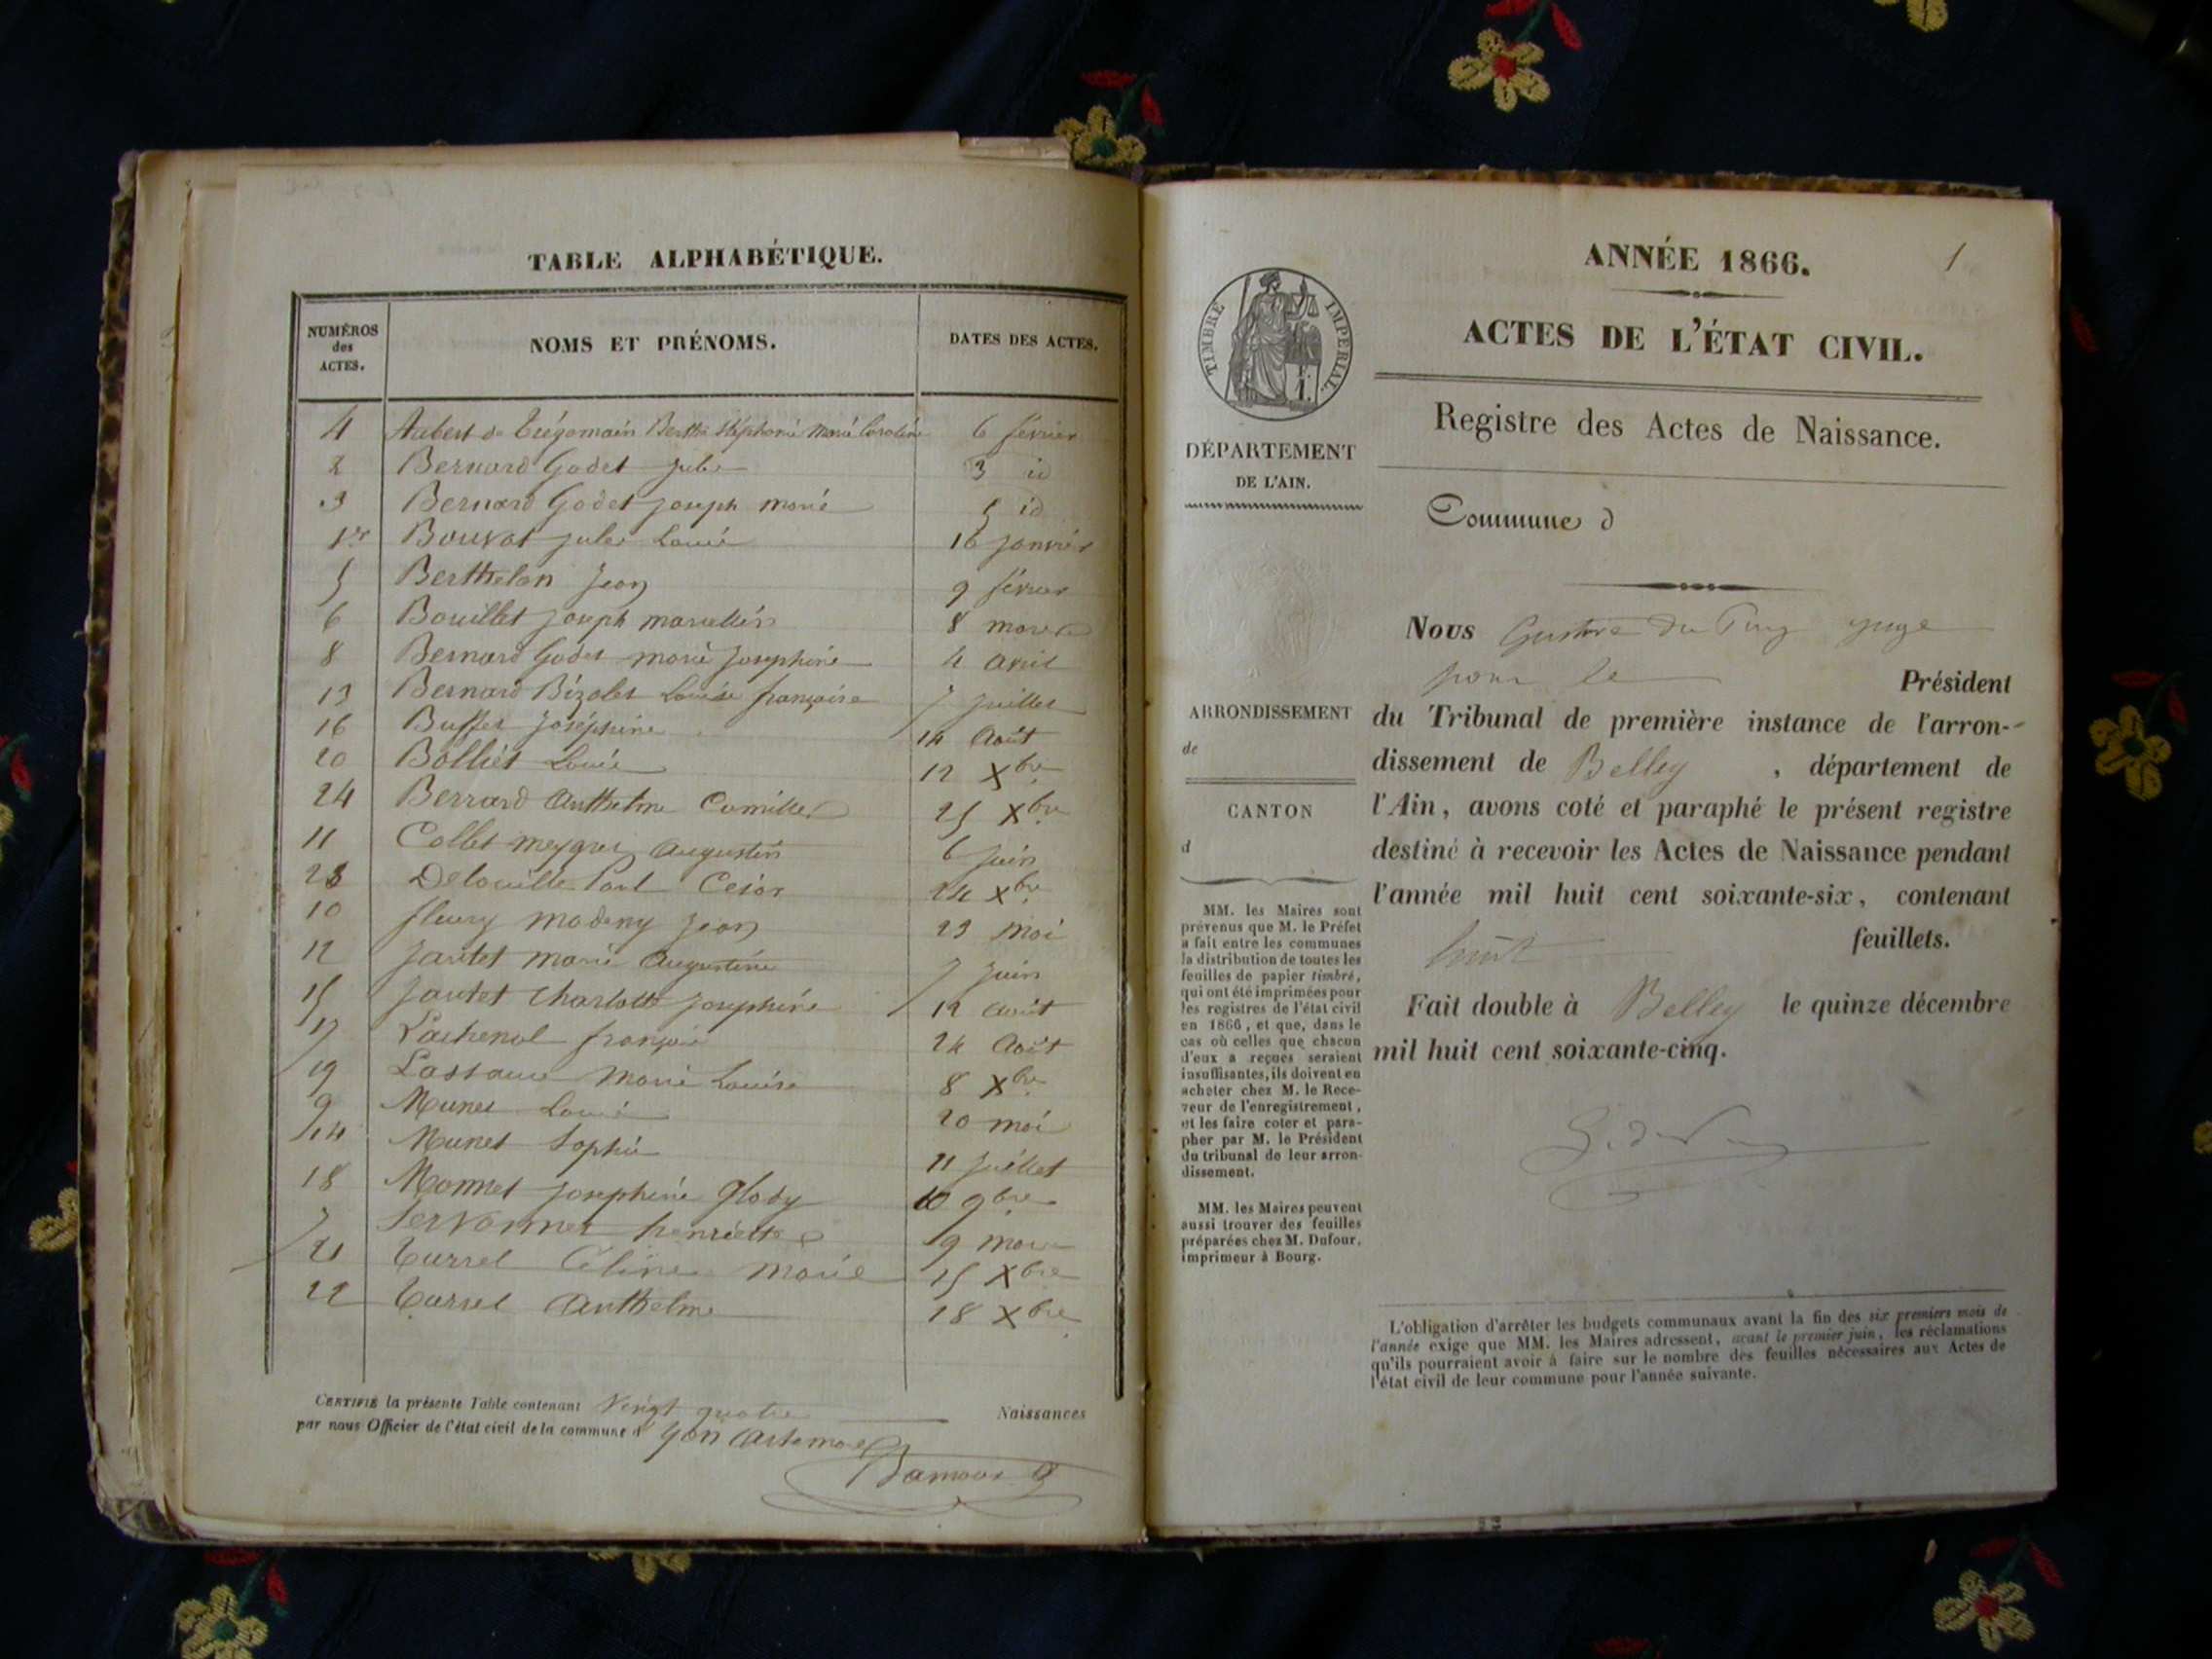 TABLE ALPHABÉTIQUE.
NUMÉROS des ACTES.
NOMS ET PRÉNOMS.
DATES DES ACTES.
4 Aubert de Trégomain Berthe Stéphanie Marie Caroline 6 février
2 Bernard Godet Jules 3 id
3 Bernard Godet Joseph Marie 5 id
1er Bouvat Jules Louis 16 janvier
5 Berthelon Jean 9 février
6 Bouillet Joseph Marcellin 8 mars
8 Bernard Godet Marie Joséphine 4 avril
13 Bernard Bizolet Louise françoise 7 juillet
16 Buffet Joséphine 14 Août
20 Bolliet Louis 12 Xbre
24 Berrard Anthelme Camille 25 Xbre
11 Collet meygret Augustin 6 Juin
23 Delouille Paul César 24 Xbre
10 fleury madeny Jean 23 Mai
12 Jantet Marie Augustine 7 Juin
15 Jantet Charlotte Joséphine 12 août
17 Lachenal françois 24 Août
19 Lassaue Marie Louise 8 Xbre
9 Munet Louis 20 mai
14 Munet Sophie 11 Juillet
18 Monnet Joséphine 10 9bre
7 Servonnet henriette 9 mars
21 Turrel Céline Marie 15 Xbre
22 Turrel Anthelme 18 Xbre
CERTIFIÉ la présente Table contenant Vingt quatre Naissances
par nous Officier de l'état civil de la commune d' Yon Artemare
ANNÉE 1866.
1
TIMBRE IMPÉRIAL.
ACTES DE L'ÉTAT CIVIL.
Registre des Actes de Naissance.
DÉPARTEMENT
DE L'AIN.
Commune d
Nous Gustave du Puy juge
pour le Président
du Tribunal de première instance de l'arron-
dissement de Belley , département de
l'Ain, avons coté et paraphé le présent registre
destiné à recevoir les Actes de Naissance pendant
l'année mil huit cent soixante-six, contenant
huit feuillets.
Fait double à Belley le quinze décembre
mil huit cent soixante-cinq.
ARRONDISSEMENT
de
CANTON
d
MM. les Maires sont
prévenus que M. le Préfet
a fait entre les communes
la distribution de toutes les
feuilles de papier timbré,
qui ont été imprimées pour
les registres de l'état civil
en 1866, et que, dans le
cas où celles que chacun
d'eux a reçues seraient
insuffisantes, ils doivent en
acheter chez M. le Rece-
veur de l'enregistrement,
et les faire coter et para-
pher par M. le Président
du tribunal de leur arron-
dissement.
MM. les Maires peuvent
aussi trouver des feuilles
préparées chez M. Dufour,
imprimeur à Bourg.
L'obligation d'arrêter les budgets communaux avant la fin des six premiers mois de
l'année exige que MM. les Maires adressent, avant le premier juin, les réclamations
qu'ils pourraient avoir à faire sur le nombre des feuilles nécessaires aux Actes de
l'état civil de leur commune pour l'année suivante.